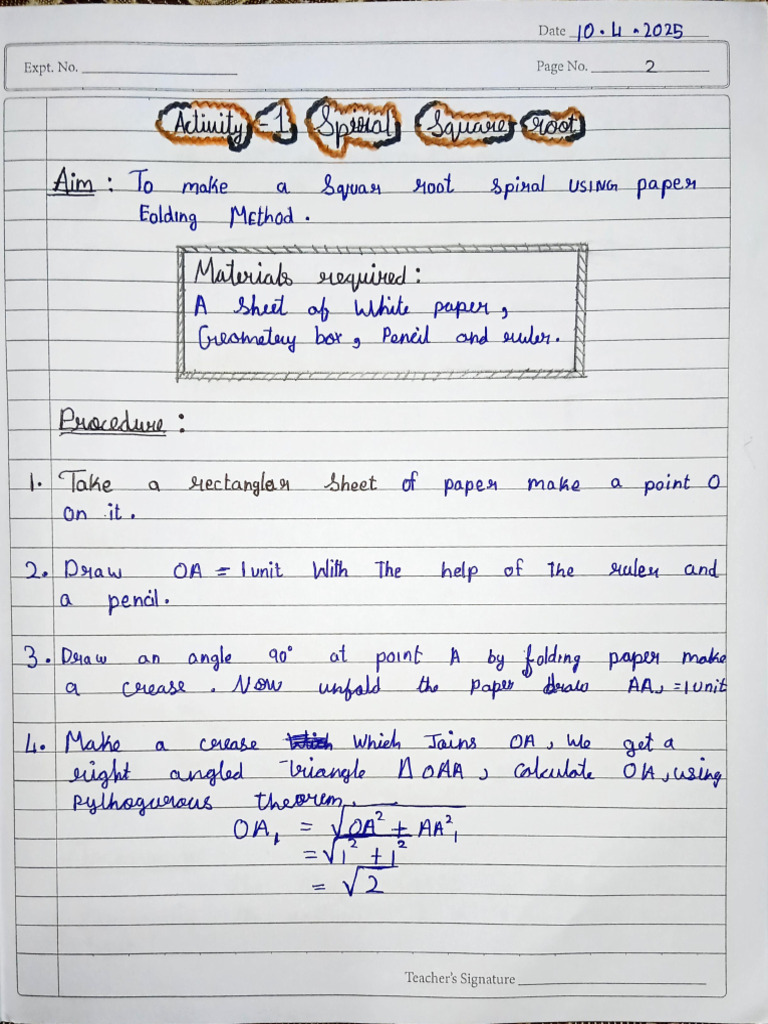 Date 10.4.2025
Expt. No.
Page No. 2
Activity -1 Spiral Square root
Aim : To make a Squar root spiral USING paper
Folding Method.
Materials required :
A Sheet of White paper,
Geometery box, Pencil and ruler.
Procedure :
1. Take a rectangler sheet of paper make a point O
on it.
2. Draw OA = 1unit With The help of the ruler and
a pencil.
3. Draw an angle 90° at point A by folding paper make
a crease. Now unfold the paper draw AA₁ =1unit
4. Make a crease Which Joins OA₁ We get a
right angled triangle Δ OAA₁ calculate OA₁ using
Pylhogurous theorem.
OA₁ = √OA² + AA²₁
= √1² + 1²
= √2
Teacher's Signature